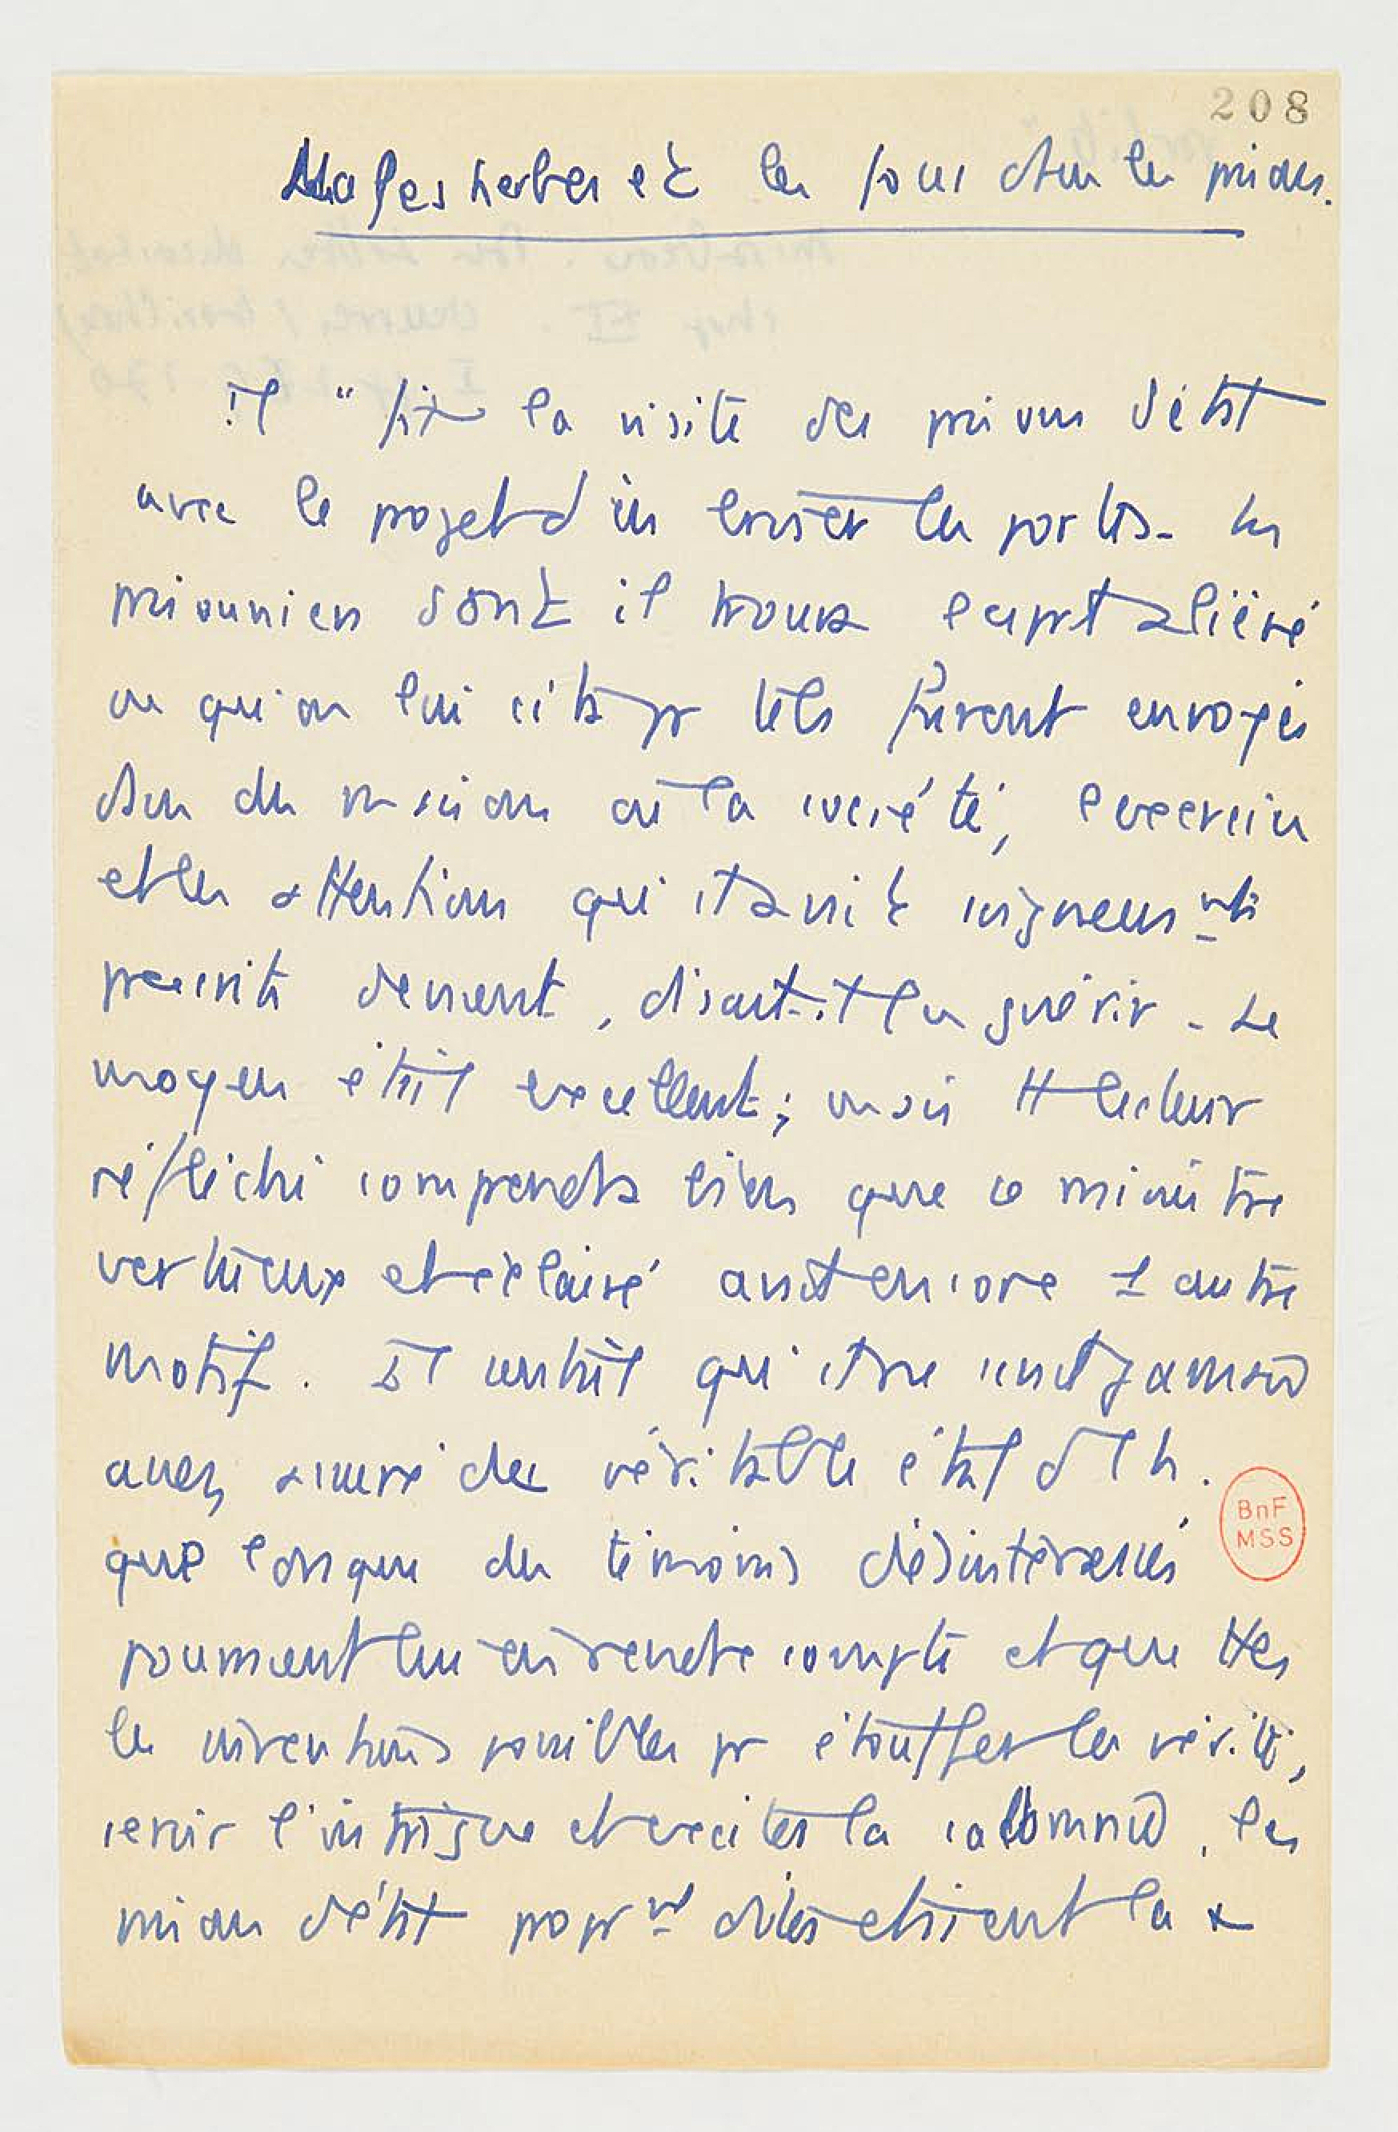 208
Malesherbes et les fous dans les prisons.
Il "fit la visite des prisons d'état
avec le projet d'en briser les portes. Les
prisonniers dont il trouva l'esprit aliéné
ou qu'on lui cita pr tels furent envoyés
dans des maisons où la société, l'exercice
et les attentions qu'il avait soigneusmt
prescrites devaient, disait-il les guérir. Le
moyen était excellent; mais tt lecteur
réfléchi comprendra bien que ce ministre
vertueux et éclairé avait encore 1 autre
motif. Il sentait qu'il ne serait jamais
assez assuré du véritable état d l h.
que lorsque des témoins désintéressés
pourraient lui en rendre compte et que ttes
les inventions possibles pr étouffer la vérité,
servir l'intrigue et exciter la calomnie, les
prisons d'état proprmt dites étaient la
BnF
MSS